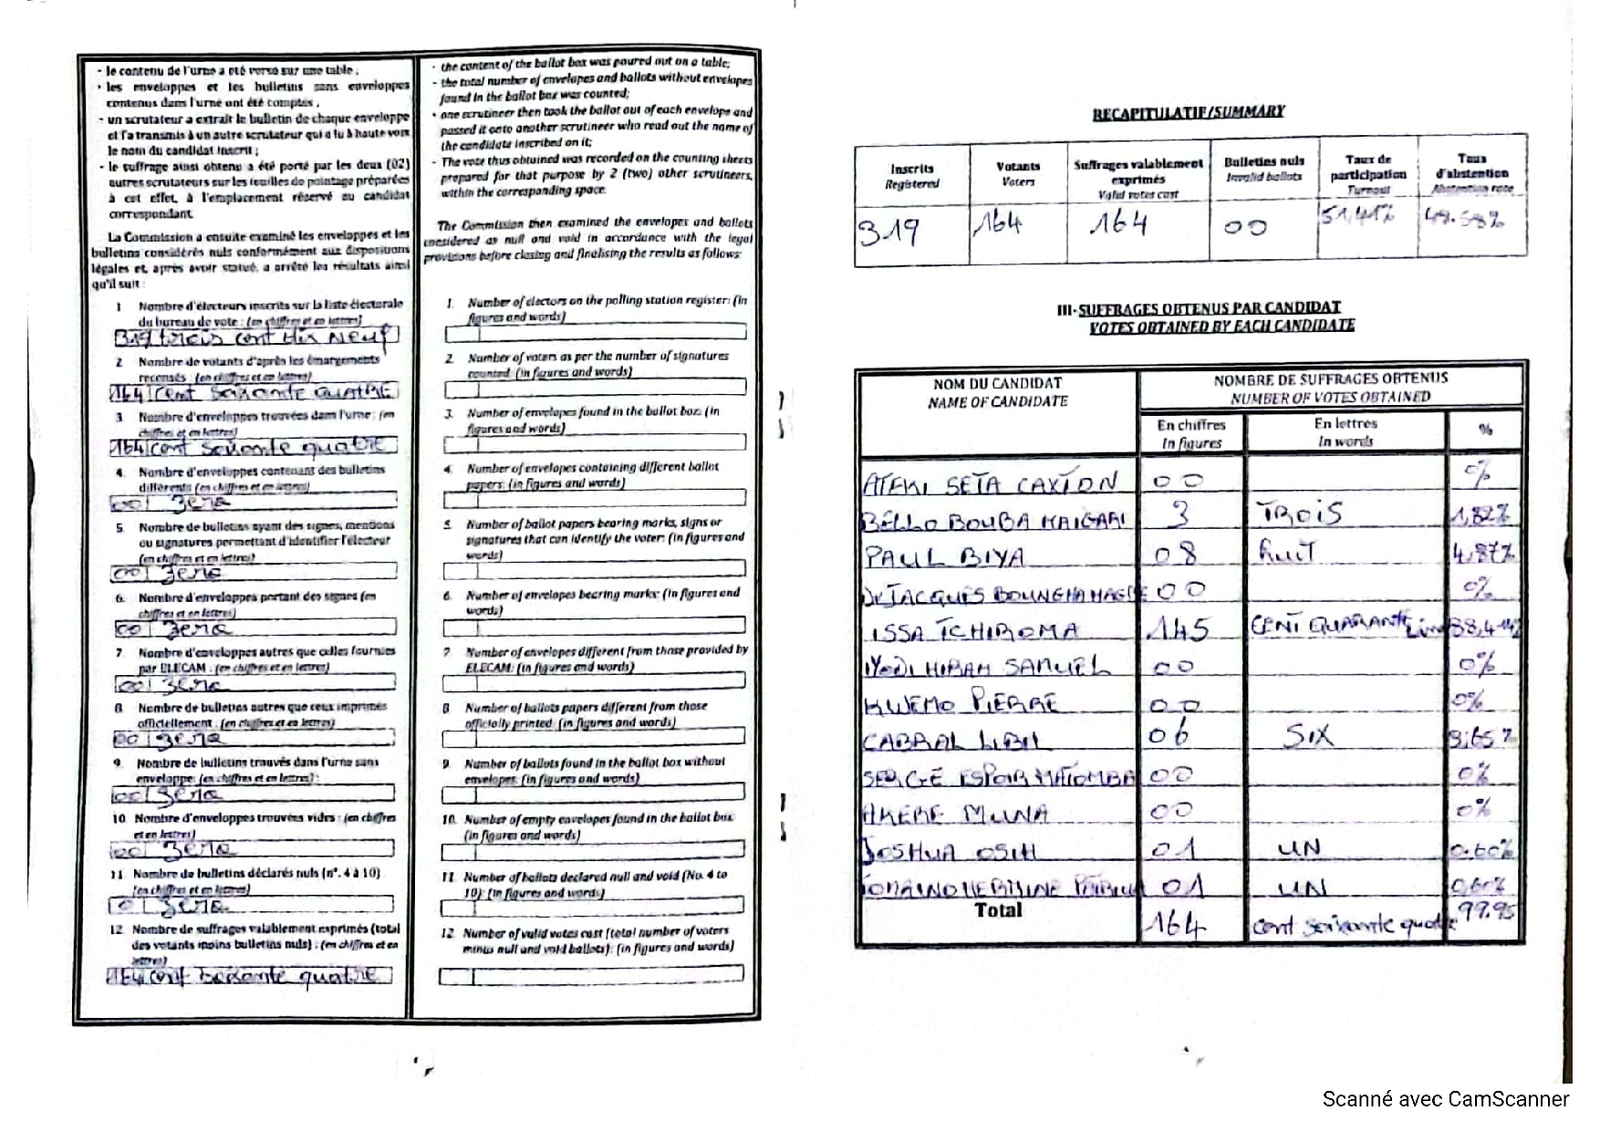 - le contenu de l'urne a été versé sur une table ;
- les enveloppes et les bulletins sans enveloppes
contenus dans l'urne ont été comptés ;
- un scrutateur a extrait le bulletin de chaque enveloppe
et l'a transmis à un autre scrutateur qui a lu à haute voix
le nom du candidat inscrit ;
- le suffrage ainsi obtenu a été porté par les deux (02)
autres scrutateurs sur les feuilles de pointage préparées
à cet effet, à l'emplacement réservé au candidat
correspondant.
La Commission a ensuite examiné les enveloppes et les
bulletins considérés nuls conformément aux dispositions
légales et, après avoir statué, a arrêté les résultats ainsi
qu'il suit :
1 Nombre d'électeurs inscrits sur la liste électorale
du bureau de vote : (en chiffres et en lettres)
319 trois cent dix neuf
2 Nombre de votants d'après les émargements
recensés : (en chiffres et en lettres)
164 cent soixante quatre
3 Nombre d'enveloppes trouvées dans l'urne : (en
chiffres et en lettres)
164 cent soixante quatre
4. Nombre d'enveloppes contenant des bulletins
différents (en chiffres et en lettres)
00 zero
5. Nombre de bulletins ayant des signes, mentions
ou signatures permettant d'identifier l'électeur
(en chiffres et en lettres)
00 zero
6. Nombre d'enveloppes portant des signes (en
chiffres et en lettres)
00 zero
7 Nombre d'enveloppes autres que celles fournies
par ELECAM : (en chiffres et en lettres)
00 zero
8 Nombre de bulletins autres que ceux imprimés
officiellement : (en chiffres et en lettres)
00 zero
9. Nombre de bulletins trouvés dans l'urne sans
enveloppe: (en chiffres et en lettres) :
00 zero
10 Nombre d'enveloppes trouvées vides : (en chiffres
et en lettres)
00 zero
11 Nombre de bulletins déclarés nuls (n°. 4 à 10)
(en chiffres et en lettres)
0 zero
12 Nombre de suffrages valablement exprimés (total
des votants moins bulletins nuls) : (en chiffres et en
lettres)
164 cent soixante quatre
- the content of the ballot box was poured out on a table;
- the total number of envelopes and ballots without envelopes
found in the ballot box was counted;
- one scrutineer then took the ballot out of each envelope and
passed it onto another scrutineer who read out the name of
the candidate inscribed on it;
- The vote thus obtained was recorded on the counting sheets
prepared for that purpose by 2 (two) other scrutineers,
within the corresponding space.
The Commission then examined the envelopes and ballots
considered as null and void in accordance with the legal
provisions before closing and finalising the results as follows:
1. Number of electors on the polling station register: (in
figures and words)
2. Number of voters as per the number of signatures
counted: (in figures and words)
3. Number of envelopes found in the ballot box: (in
figures and words)
4. Number of envelopes containing different ballot
papers: (in figures and words)
5. Number of ballot papers bearing marks, signs or
signatures that can identify the voter: (in figures and
words)
6. Number of envelopes bearing marks: (in figures and
words)
7 Number of envelopes different from those provided by
ELECAM: (in figures and words)
8 Number of ballots papers different from those
officially printed: (in figures and words)
9 Number of ballots found in the ballot box without
envelopes: (in figures and words)
10. Number of empty envelopes found in the ballot box:
(in figures and words)
11. Number of ballots declared null and void (No. 4 to
10): (in figures and words)
12. Number of valid votes cast (total number of voters
minus null and void ballots): (in figures and words)
RECAPITULATIF/SUMMARY
Inscrits Registered Votants Voters Suffrages valablement exprimés Valid votes cast Bulletins nuls Invalid ballots Taux de participation Turnout Taux d'abstention Abstention rate
319 164 164 00 51,41% 48.58%
III-SUFFRAGES OBTENUS PAR CANDIDAT
VOTES OBTAINED BY EACH CANDIDATE
NOM DU CANDIDAT NOMBRE DE SUFFRAGES OBTENUS
NAME OF CANDIDATE NUMBER OF VOTES OBTAINED
En chiffres En lettres %
In figures In words
ATEKI SETA CAXTON 00 %
BELLO BOUBA MAIGARI 3 TROIS 1,82%
PAUL BIYA 08 huit 4,87%
Dr JACQUES BOUNGHA HAGBE 00 %
ISSA TCHIROMA 145 CENT QUARANTE cinq 88,414%
IYODI HIRAM SAMUEL 00 0%
KWEMO PIERRE 00 0%
CABRAL LIBII 06 SIX 3,65%
SERGE ESPOIR MATOMBA 00 0%
AKERE MUNA 00 0%
JOSHUA OSIH 01 UN 0.60%
TOMAINO HERMINE PATRICIA 01 UN 0,60%
Total 164 cent soixante quatre 99.95
Scanné avec CamScanner